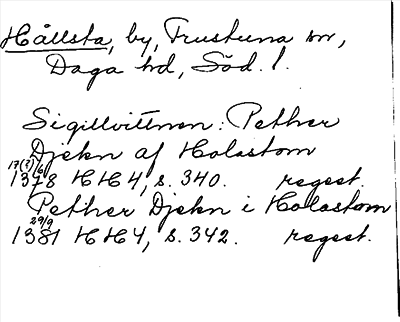 Hållsta, by, Frustuna sn,
Daga hd, Söd. l.
Sigillvittnen: Pether
Djekn af Holastom
17(?)/6 1378 HH4, s. 340. regest.
Pether Djekn i Holastom
29/9 1381 HH4, s. 342. regest.